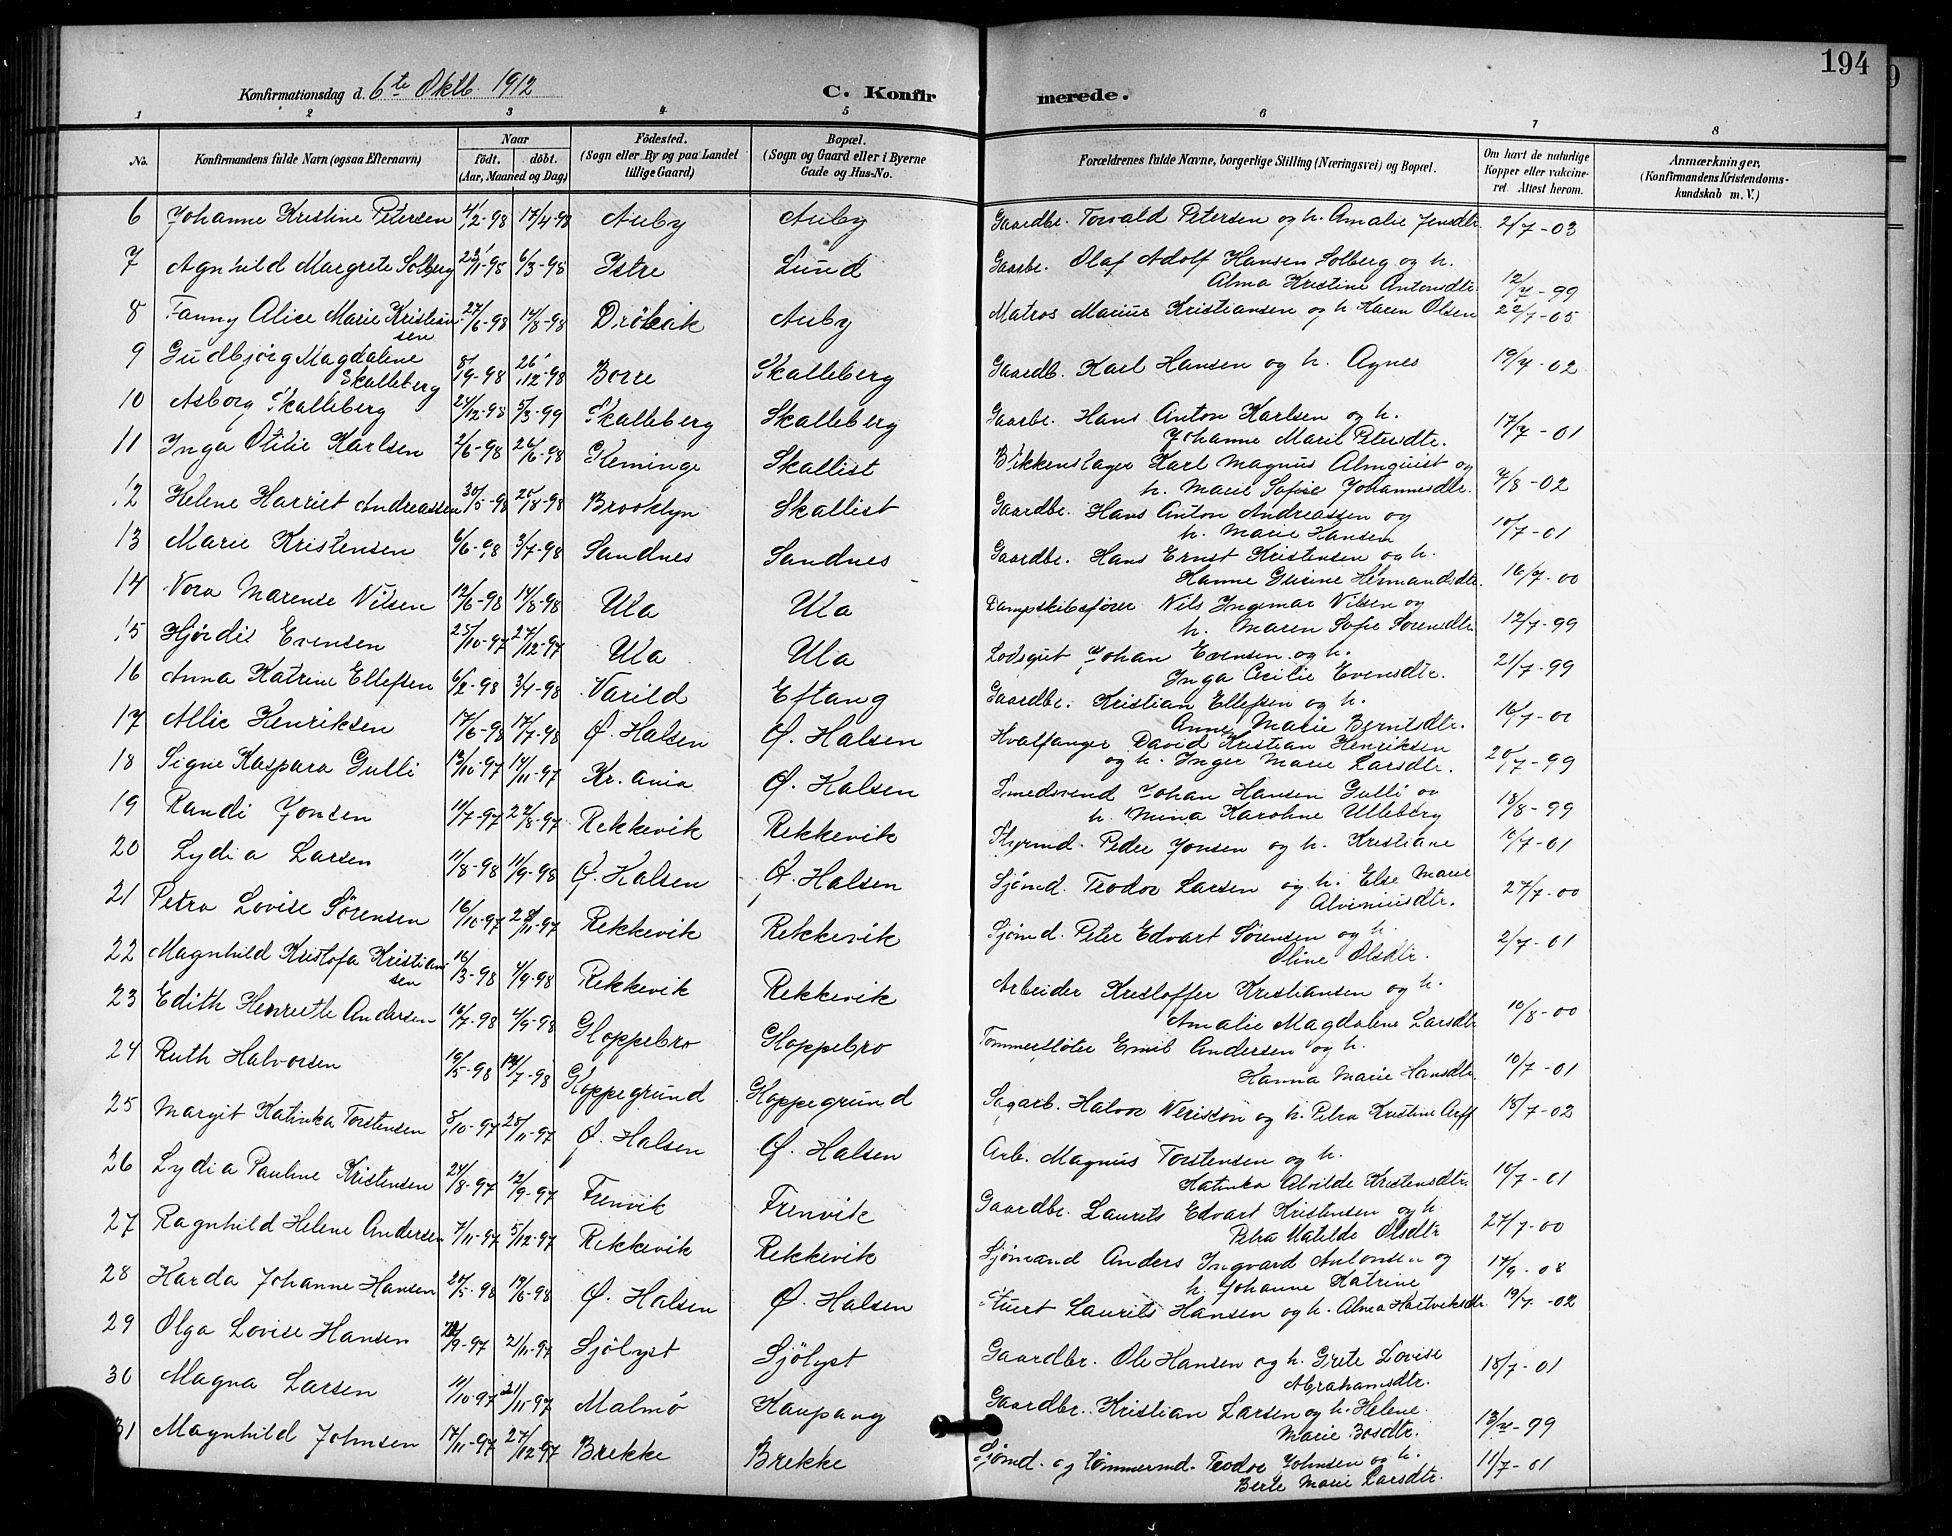 194
Konfirmationsdag d. 6te Oktb. 1912
C. Konfirmerede.
1 2 3 4 5 6 7 8
No. Konfirmandens fulde Navn (ogsaa Efternavn) Naar født. døbt. (Aar, Maaned og Dag) Fødested. (Sogn eller By og paa Landet tillige Gaard) Bopæl. (Sogn og Gaard eller i Byerne Gade og Hus-No. Forældrenes fulde Navne, borgerlige Stilling (Næringsvei) og Bopæl. Om havt de naturlige Kopper eller vakcineret. Attest herom. Anmærkninger, (Konfirmandens Kristendomskundskab m. V.)
6 Johanne Kristine Petersen 4/2-98 17/4-98 Auby Auby Gaardbr. Torvald Petersen og h. Amalie Jensdtr. 2/7-03
7 Agnhild Margrete Solberg 23/1-98 6/3-98 Istre Lund Gaarbr. Olaf Adolf Hansen Solberg og h.
Alma Kristine Antonsdtr. 12/7-99
8 Fanny Alice Marie Kristiansen 27/6-98 14/8-98 Drøbak Auby Matros Marius Kristiansen og h. Karen Olsen 22/7-05
9 Gudbjørg Magdalene
Skalleberg 8/9-98 26/12-98 Borre Skalleberg Gaardb. Karl Hansen og h. Agnes 19/7-02
10 Asborg Skalleberg 24/12-98 5/3-99 Skalleberg Skalleberg Gaarbr. Hans Anton Karlsen og h.
Johanne Marie Petersdtr. 17/7-01
11 Inga Otilie Karlsen 2/6-98 26/6-98 Heminge Skallist Blikkenslager Karl Magnus Almquist og
h. Marie Sofie Johannesdtr. 7/8-02
12 Helene Harriet Andreassen 30/5-98 28/8-98 Brooklyn Skallist Gaardbr. Hans Anton Andreassen og
h. Marie Hansen 10/7-01
13 Marie Kristensen 6/6-98 3/7-98 Sandnes Sandnes Gaardbr. Hans Ernst Kristensen og h.
Hanne Gurine Hermandsdtr. 16/7-00
14 Nora Marense Nilsen 12/6-98 14/8-98 Ula Ula Dampskibsfører Nils Ingemar Nilsen og
h. Maren Sofie Sørensdtr. 12/7-99
15 Hjørdis Evensen 25/10-97 27/12-97 Ula Ula Lodsgut Johan Evensen og h.
Inga Cecilie Evensdtr. 21/7-99
16 Anna Katrine Ellefsen 6/2-98 3/4-98 Varild Eftang Gaardbr. Kristian Ellefsen og h.
Anne Marie Berntdtr. 16/7-01
17 Allie Henriksen 17/6-98 17/7-98 Ø. Halsen Ø. Halsen Hvalfanger David Kristian Henriksen
og h. Inger Marie Larsdtr. 20/7-99
18 Signe Kaspara Gulli 13/10-97 14/11-97 Kr.ania Ø. Halsen Smedsvend Johan Hansen Gulli og
h. Mina Karoline Ulleberg 18/8-99
19 Randi Jonsen 11/7-97 22/8-97 Rekkevik Rekkevik Styrmd. Peder Jonsen og h. Kristiane 11/7-01
20 Lydia Larsen 11/8-98 11/9-98 Ø. Halsen Ø. Halsen Sjømd. Teodor Larsen og h. Else Marie
Alviniusdtr. 27/7-00
21 Petra Lovise Sørensen 16/10-97 28/11-97 Rekkevik Rekkevik Sjømd. Peter Edvart Sørensen og h.
Oline Olsdtr. 2/7-01
22 Magnhild Kristofa Kristiansen 16/3-98 4/9-98 Rekkevik Rekkevik Arbeider Kristoffer Kristiansen og h.
Amalie Magdalene Larsdtr. 10/8-00
23 Edith Henriette Andersen 16/7-98 4/9-98 Gloppebro Gloppebro Tømmerfløter Emil Andersen og h.
Hanna Marie Hansdtr. 10/7-01
24 Ruth Halvorsen 19/5-98 17/7-98 Gloppegrund Gloppegrund Sagarb. Halvor Neriksøn og h. Petra Kristine Arff 18/7-02
25 Margit Katinka Torstensen 8/10-97 28/11-97 Ø. Halsen Ø. Halsen Arb. Magnus Torstensen og h.
Katinka Alvilde Kristensdtr. 10/7-01
26 Lydia Pauline Kristensen 24/8-97 12/9-97 Frenvik Frenvik Gaardbr. Laurits Edvart Kristensen og h.
Petra Matilde Olsdtr. 27/7-00
27 Ragnhild Helene Andersen 7/11-97 5/12-97 Rekkevik Rekkevik Sjømand Anders Ingvard Antonsen og
h. Johanne Katrine 17/9-08
28 Harda Johanne Hansen 24/5-98 19/6-98 Ø. Halsen Ø. Halsen Stuert Laurits Hansen og h. Alma Hartviksdtr. 19/7-02
29 Olga Lovise Hansen 28/9-97 21/11-97 Sjölyst Sjölyst Gaardbr. Ole Hansen og h. Grete Lovise
Abrahamsdtr. 18/7-01
30 Magna Larsen 11/10-97 21/11-97 Malmø Kaupang Gaardbr. Kristian Larsen og h. Helene
Marie Bosdtr. 13/7-99
31 Magnhild Johnsen 17/11-97 27/12-97 Brekke Brekke Sjømd. og tømmermd. Teodor Johnsen og h.
Berte Marie Larsdtr. 11/7-01